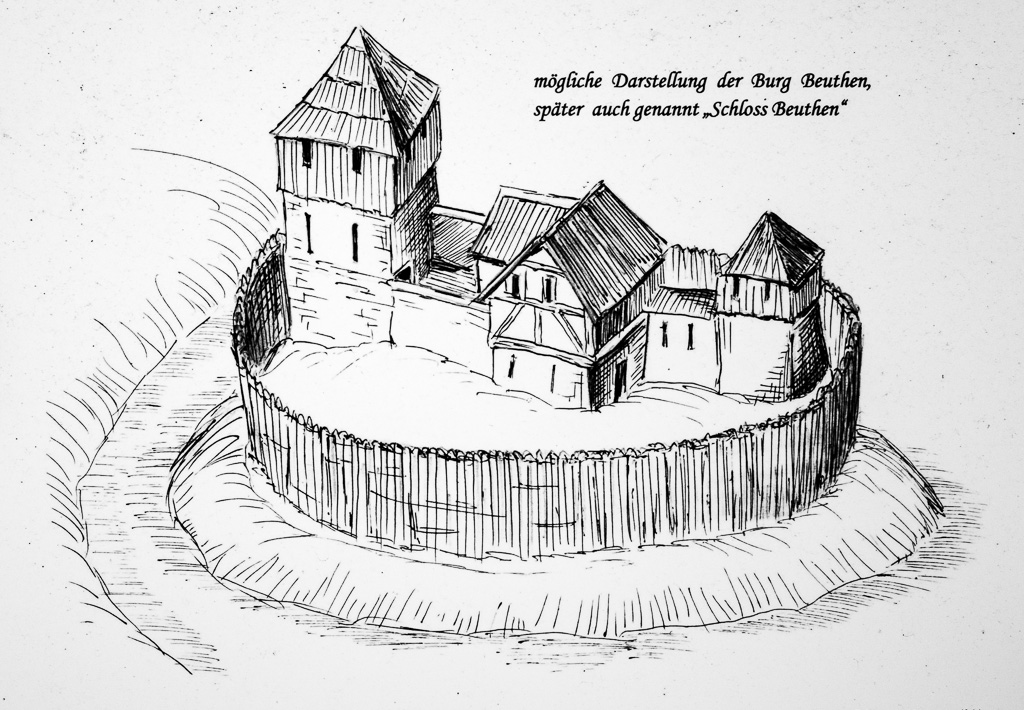 mögliche Darstellung der Burg Beuthen,
später auch genannt „Schloss Beuthen“